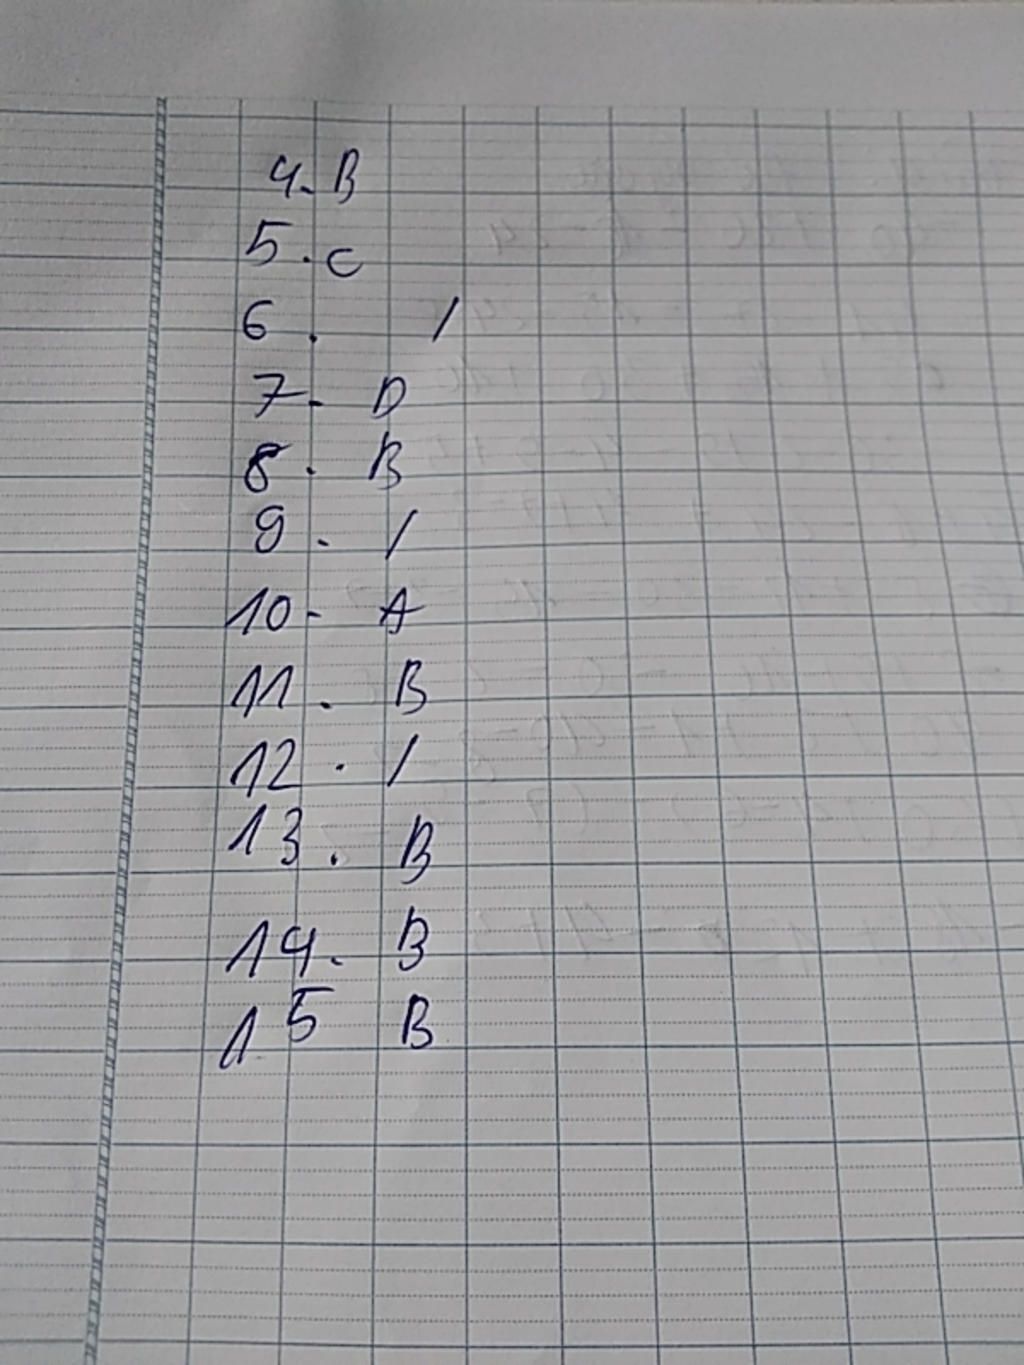 4. B
5. C
6. /
7. D
8. B
9. /
10. A
11. B
12. /
13. B
14. B
15 B